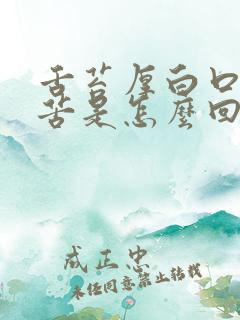 舌苔厚白口
苦是怎麼回
成正忠
未经同意禁止转载